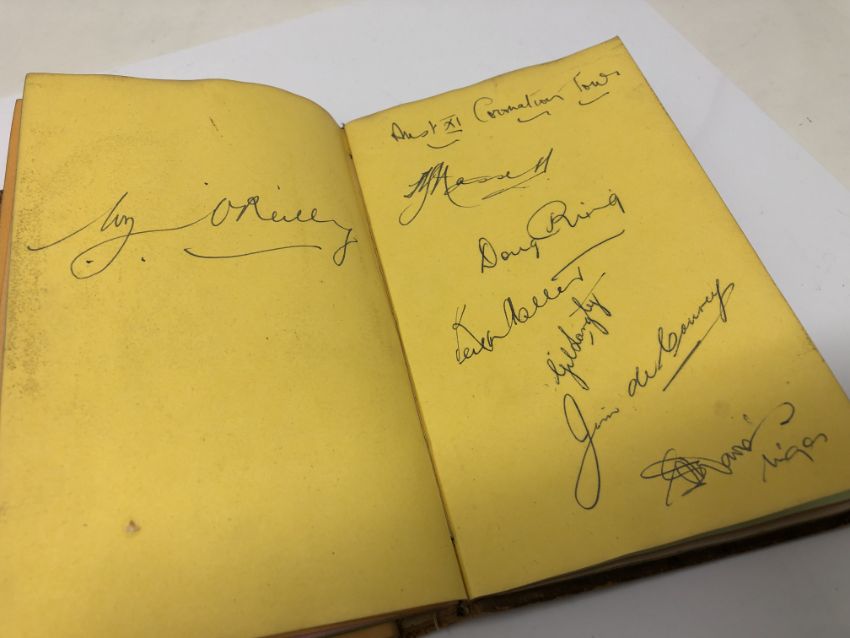 Wm. O'Reilly
Aust XI Coronation Tour
A L Hassett
Doug Ring
Keith Miller
Gil Langley
Jim de Courcy